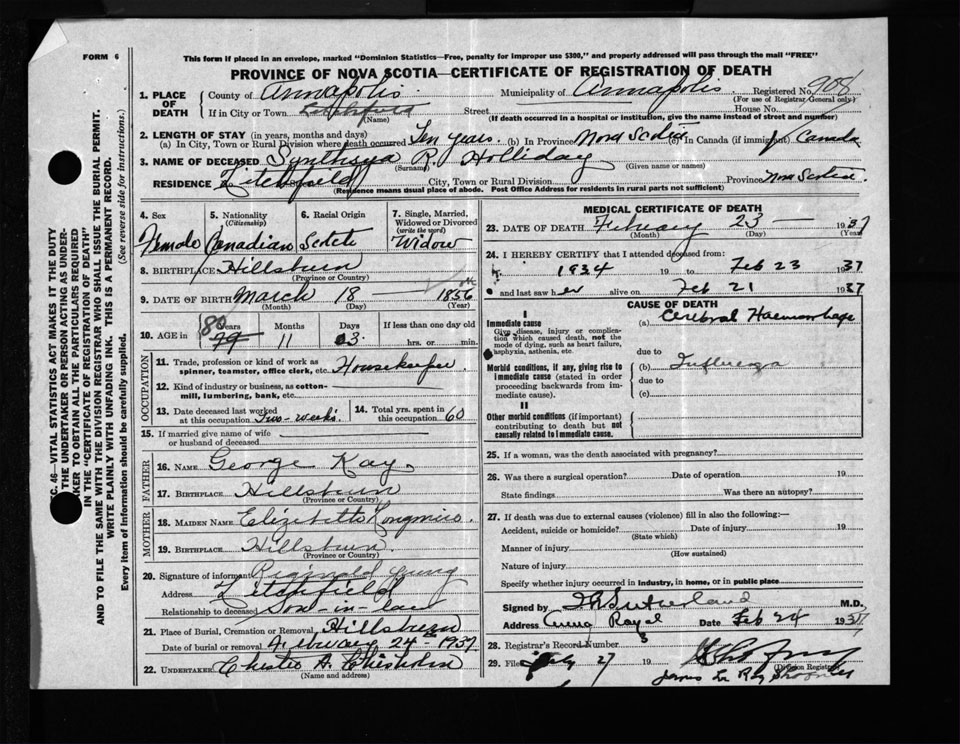 FORM 6
This form if placed in an envelope, marked "Dominion Statistics—Free, penalty for improper use $300," and properly addressed will pass through the mail "FREE"
PROVINCE OF NOVA SCOTIA—CERTIFICATE OF REGISTRATION OF DEATH
1. PLACE OF DEATH
County of Annapolis Municipality of Annapolis Registered No. 908
(For use of Registrar General only)
If in City or Town Litchfield Street House No.
(Name) (If death occurred in a hospital or institution, give the name instead of street and number)
2. LENGTH OF STAY (in years, months and days)
(a) In City, Town or Rural Division where death occurred Ten years. (b) In Province Nova Scotia (c) In Canada (if immigrant) Canada
3. NAME OF DECEASED Synthsya R. Holliday
(Surname) (Given name or names)
RESIDENCE Litchfield City, Town or Rural Division Province Nova Scotia
(Residence means usual place of abode. Post Office Address for residents in rural parts not sufficient)
4. Sex Female
5. Nationality (Citizenship) Canadian
6. Racial Origin Scotch
7. Single, Married, Widowed or Divorced (write the word) Widow
8. BIRTHPLACE Hillsburn
(Province or Country)
9. DATE OF BIRTH March 18 1856
(Month) (Day) (Year)
10. AGE in 80 Years 11 Months Days If less than one day old
hrs. or min.
OCCUPATION
11. Trade, profession or kind of work as spinner, teamster, office clerk, etc. Housekeeper
12. Kind of industry or business, as cotton-mill, lumbering, bank, etc.
13. Date deceased last worked at this occupation Two-weeks.
14. Total yrs. spent in this occupation 60
15. If married give name of wife or husband of deceased
FATHER
16. NAME George Kay.
17. BIRTHPLACE Hillsburn
(Province or Country)
MOTHER
18. MAIDEN NAME Elizabeth Longmire.
19. BIRTHPLACE Hillsburn.
(Province or Country)
20. Signature of informant Reginald
Address Litchfield
Relationship to deceased Son-in-law
21. Place of Burial, Cremation or Removal Hillsburn
Date of burial or removal February 24-1937
22. UNDERTAKER Chester A. Chisholm
(Name and address)
MEDICAL CERTIFICATE OF DEATH
23. DATE OF DEATH February 23 — 1937
(Month) (Day) (Year)
24. I HEREBY CERTIFY that I attended deceased from:
1934 19 to Feb 23 1937
and last saw her alive on Feb 21 1937
CAUSE OF DEATH
I
Immediate cause
Give disease, injury or complication which caused death, not the mode of dying, such as heart failure, asphyxia, asthenia, etc.
(a) Cerebral Haemorrhage
due to
Morbid conditions, if any, giving rise to immediate cause (stated in order proceeding backwards from immediate cause).
(b) Influenza
due to
(c)
II
Other morbid conditions (if important) contributing to death but not causally related to immediate cause.
25. If a woman, was the death associated with pregnancy?
26. Was there a surgical operation? Date of operation 19
State findings Was there an autopsy?
27. If death was due to external causes (violence) fill in also the following:—
Accident, suicide or homicide? Date of injury 19
(State which)
Manner of injury
(How sustained)
Nature of injury
Specify whether injury occurred in industry, in home, or in public place
Signed by Sutherland M.D.
Address Anna Royal Date Feb 24 1937
28. Registrar's Record Number 3
29. Filed 27 19
(Division Registrar)
SEC. 46—VITAL STATISTICS ACT MAKES IT THE DUTY
OF THE UNDERTAKER OR PERSON ACTING AS UNDERTAKER TO OBTAIN ALL THE PARTICULARS REQUIRED
IN THE "CERTIFICATE OF REGISTRATION OF DEATH"
AND TO FILE THE SAME WITH THE DIVISION REGISTRAR WHO SHALL ISSUE THE BURIAL PERMIT.
WRITE PLAINLY WITH UNFADING INK. THIS IS A PERMANENT RECORD.
Every item of information should be carefully supplied. (See reverse side for instructions.)